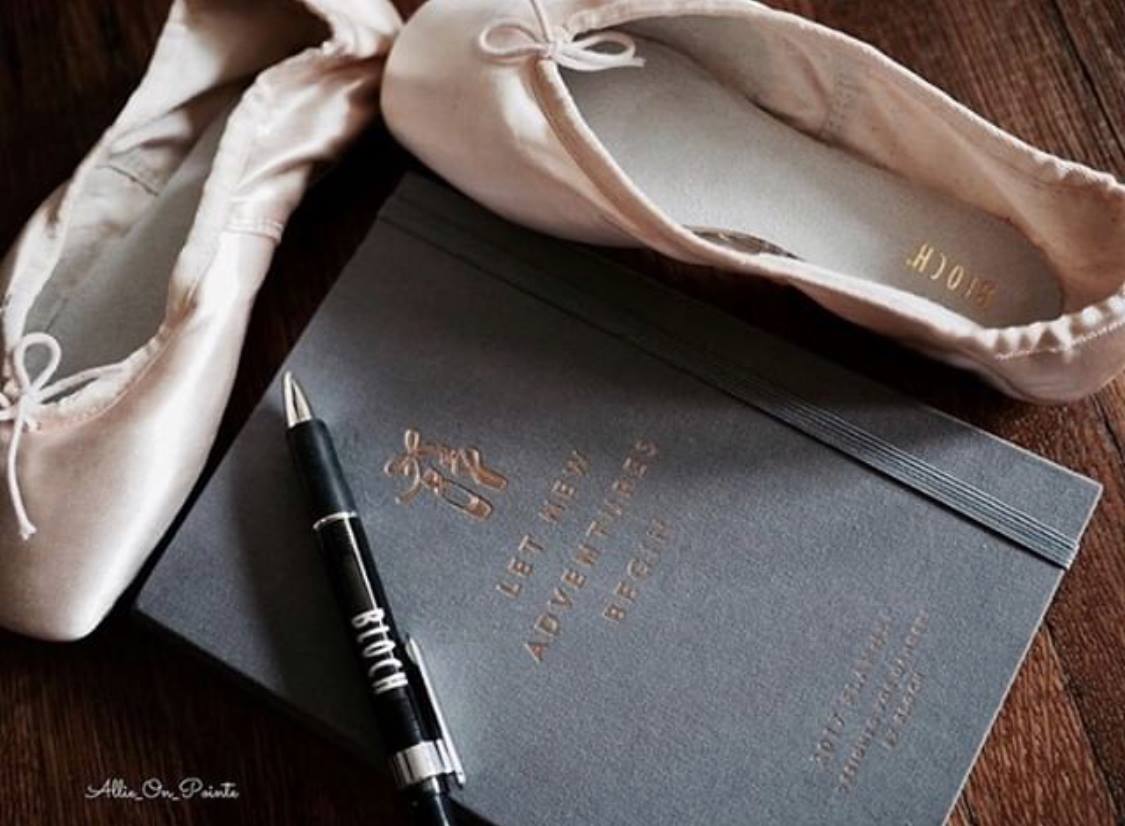 BLOCH
LET NEW
ADVENTURES
BEGIN
BLOCH
2017 PLANNER
BY BLOCH
Allie_On_Pointe